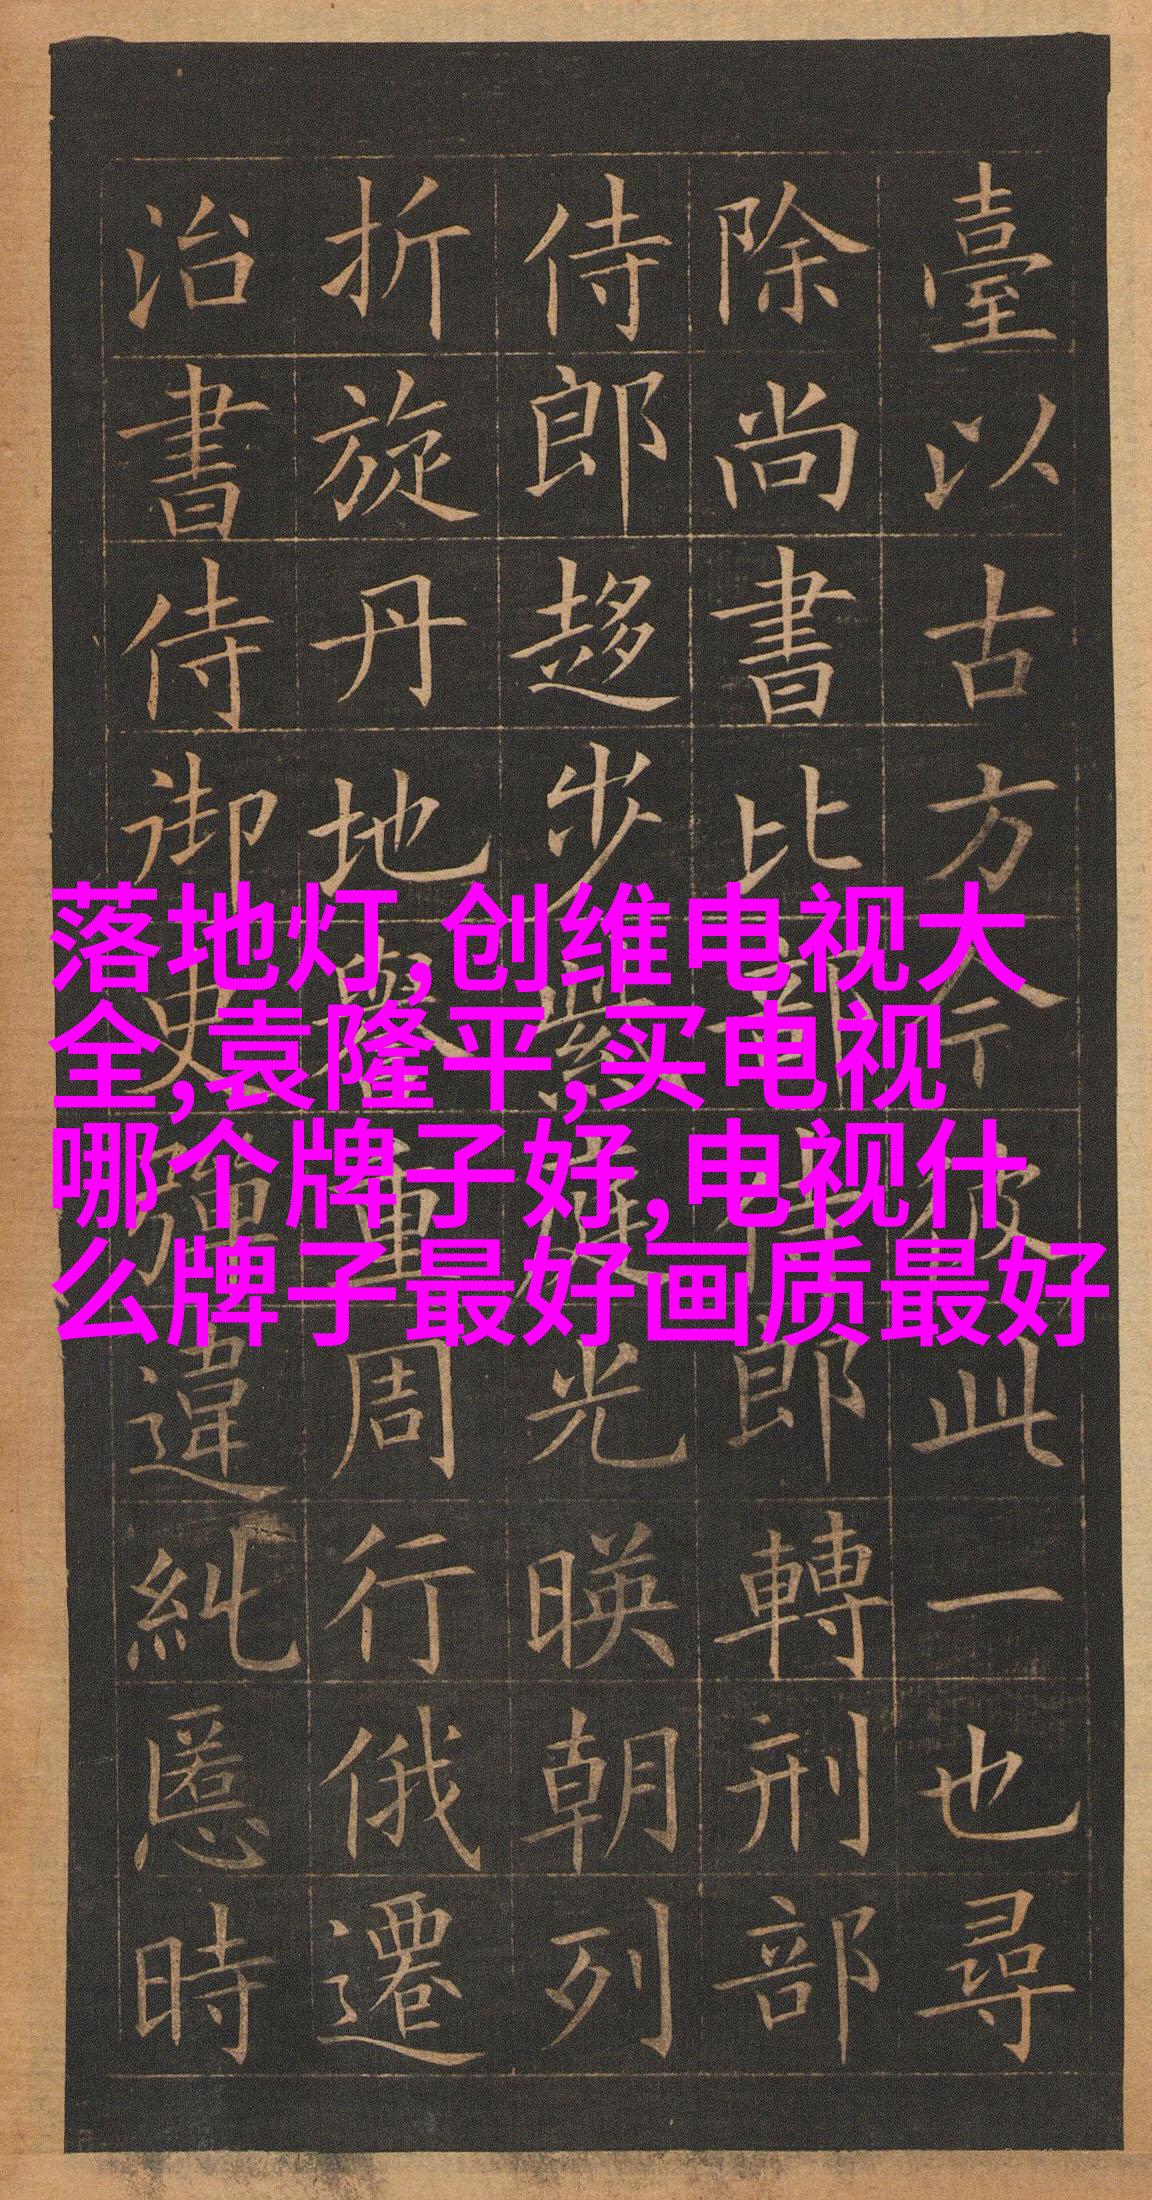 臺以古方今彼此一也尋
除尚書比部侍郎轉刑部
侍郎趍步紫庭光暎朝列
折旋丹地舉重周行俄遷
治書侍御史彈違糺慝時
落地灯,创维电视大
全,袁隆平,买电视
哪个牌子好,电视什
么牌子最好画质最好